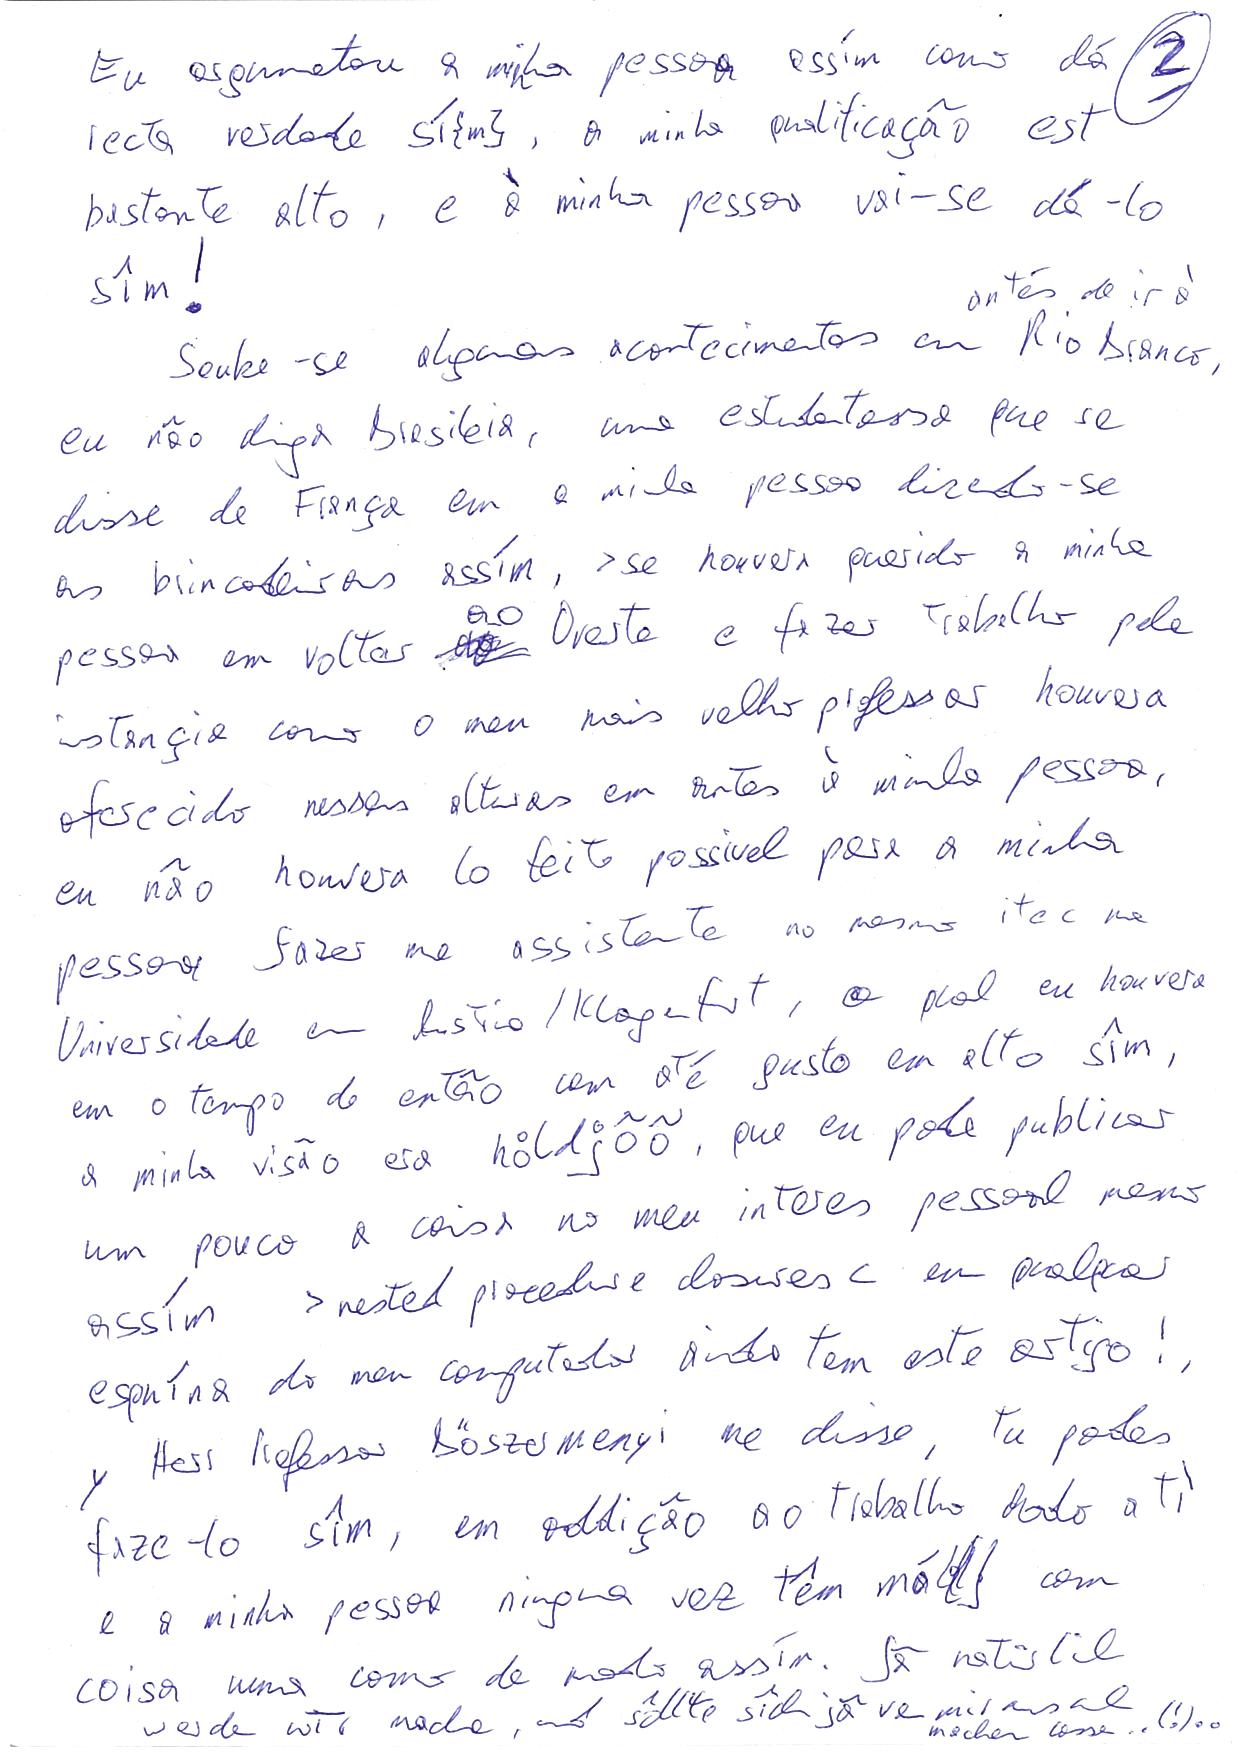 Eu argumetou a minha pessoa assím como dá 2
recta verdade sí{m}, a minha qualificação est
bastante alto, e à minha pessoa vai-se dá-lo
sîm!
antés de ir à
Soube-se algumas acontecimentos em Rio Branco,
eu não diga Brasileia, uma estudantessa que se
disse de França em a minha pessoa dizendo-se
as brincadeiras assím, >se houvera querido a minha
pessoa em voltar ao Oveste e fazer trabalho pela
instançia como o meu mais velho professor houvera
oferecido nessas alturas em antes à minha pessoa,
eu não houvera lo feito possivel para a minha
pessoa fazer me assistente no mesmo itec na
Universidade em Austria/Klagenfurt, o qual eu houvera
em o tempo de então com até gusto em alto sîm,
a minha visão era , que eu pode publicar
um pouco a coisa no meu interes pessoal mesmo
assím >nested procedure closures< em qualquer
esquína do meu computador ainda tem este artigo!,
y Herr Professor Böszermenyi me disse, tu podes
faze-lo sîm, em addição ao trabalho dado a tì
e a minha pessoa ninguna vez têm má com
coisa uma como de modo assím. Jã natürlil
werde wir mache, 
machen